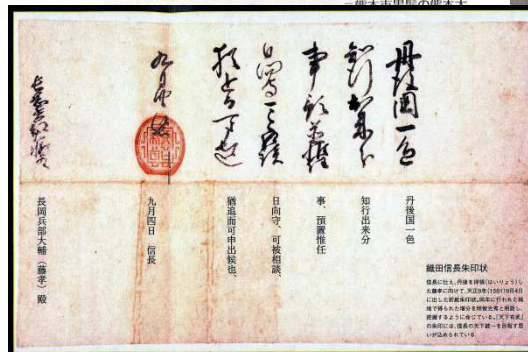 丹後國一色
知行出来分
事預置惟任
九月四日
丹後国一色
知行出来分
事、預置惟任
日向守、可被相談、
猶追而可申出候也、
九月四日 信長
長岡兵部大輔(藤孝)殿
織田信長朱印状
信長に仕え、丹後を拝領(はいりょう)し
た藤孝に向けて、天正9年(1581)9月4日
に出した折紙朱印状。同年に行われた検
地で得られた増分を明智光秀と相談し、
把握するように命じている。「天下布武」
の朱印には、信長の天下統一を目指す思
いが込められている